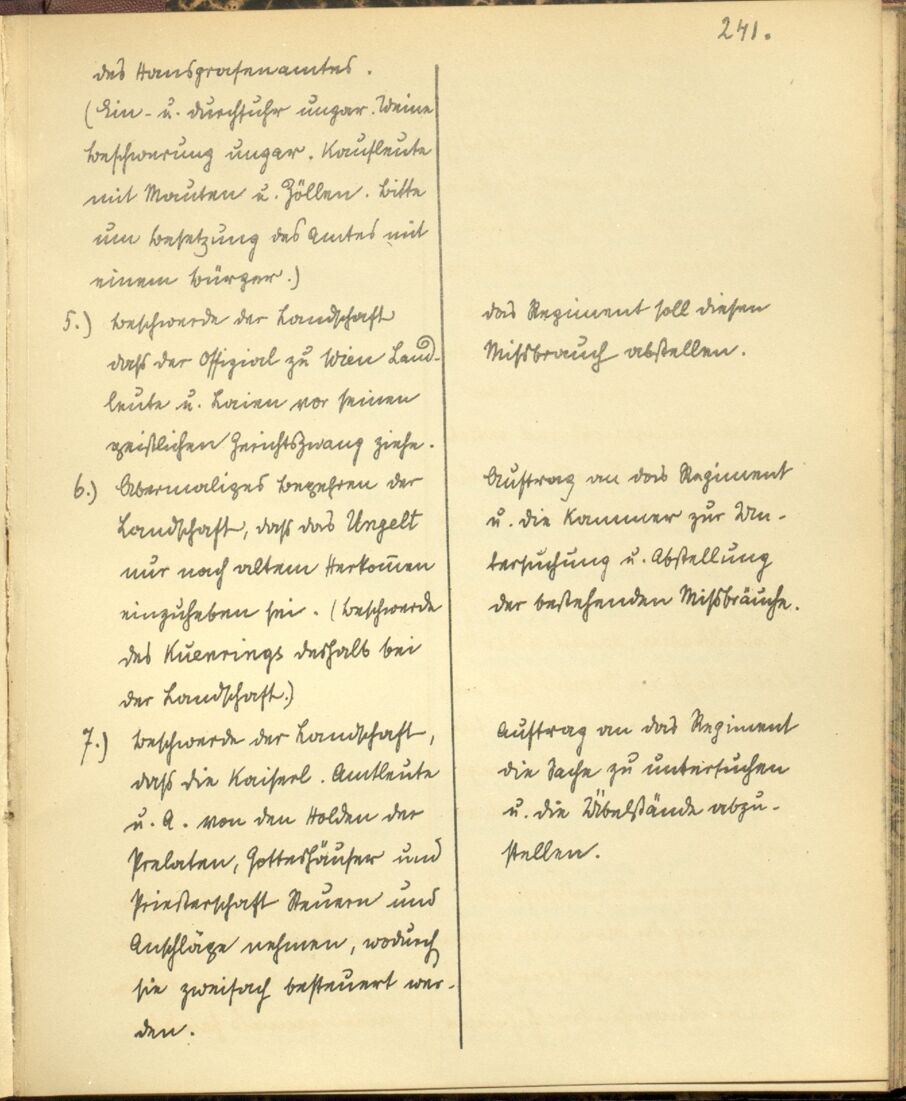 241.
des Hansgrafenamtes.
(Ein- u. Durchfuhr ungar. Weine
Beschwerung ungar. Kaufleute
mit Mauten u. Zöllen. Bitte
um Besetzung des Amtes mit
einem Bürger.)
5.) Beschwerde der Landschaft
daß der Offizial zu Wien Land-
leute u. Laien vor seinen
geistlichen Gerichtszwang ziehe.
6.) Abermaliges Begehren der
Landschaft, daß das Ungelt
nur nach altem Herkom̄en
einzuheben sei. (Beschwerde
des Kuenrings deshalb bei
der Landschaft.)
7.) Beschwerde der Landschaft,
daß die Kaiserl. Amtleute
u. A. von den Holden der
Prelaten, Gotteshäuser und
Priesterschaft Steuern und
Anschläge nehmen, wodurch
sie zweifach besteuert wer-
den.
Das Regiment soll diesen
Mißbrauch abstellen.
Auftrag an das Regiment
u. die Kammer zur Un-
tersuchung u. Abstellung
der bestehenden Mißbräuche.
Auftrag an das Regiment
die Sache zu untersuchen
u. die Übelstände abzu-
stellen.